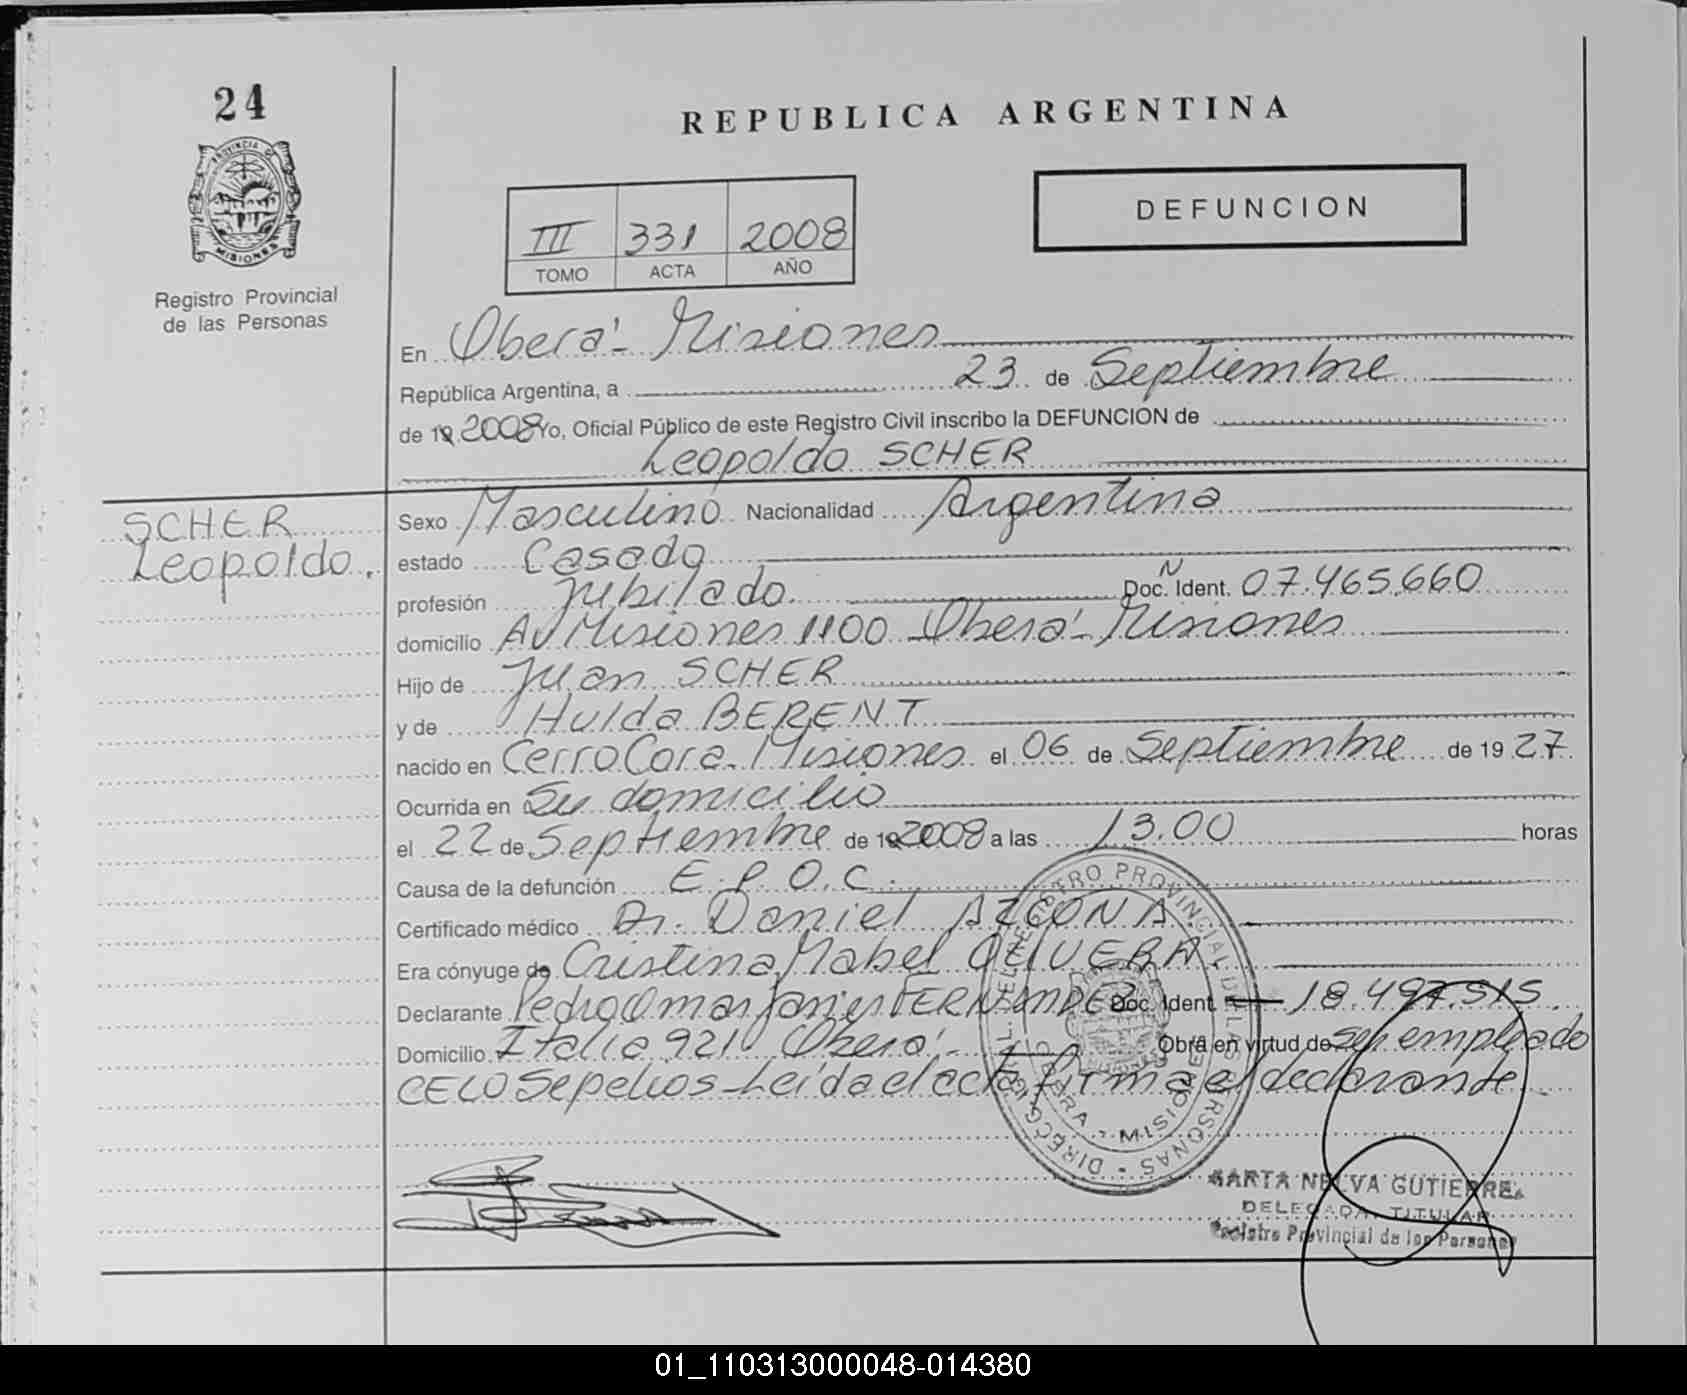 24
PROVINCIA DE
MISIONES
Registro Provincial
de las Personas
REPUBLICA ARGENTINA
III 331 2008
TOMO ACTA AÑO
DEFUNCION
En Oberá - Misiones
República Argentina, a 23 de Septiembre
de 19 2008 Yo, Oficial Público de este Registro Civil inscribo la DEFUNCION de
Leopoldo SCHER
SCHER
Leopoldo.
Sexo Masculino Nacionalidad Argentina
estado Casado
profesión Jubilado Doc. N Ident. 07.465.660
domicilio Av Misiones 1100 Oberá - Misiones
Hijo de Juan SCHER
y de Hulda BERENT
nacido en Cerro Cora - Misiones el 06 de Septiembre de 19 27
Ocurrida en Su domicilio
el 22 de Septiembre de 19 2008 a las 13.00 horas
Causa de la defunción E.P.O.C.
Certificado médico Dr. Daniel AZCONA
Era cónyuge de Cristina Mabel OLIVERA.
Declarante Pedro Omar Javier FERNANDEZ Doc. Ident. 18.497.515
Domicilio Italia 921 Oberá - Obra en virtud de ser empleado
CELO Sepelios - Leída el acta, firma el declarante
DIRECC. GRAL. DEL REGISTRO PROVINCIAL DE LAS PERSONAS
OBERA - MISIONES
SARTA NELVA GUTIERREZ
DELEGADA TITULAR
Registro Provincial de las Personas
01_110313000048-014380